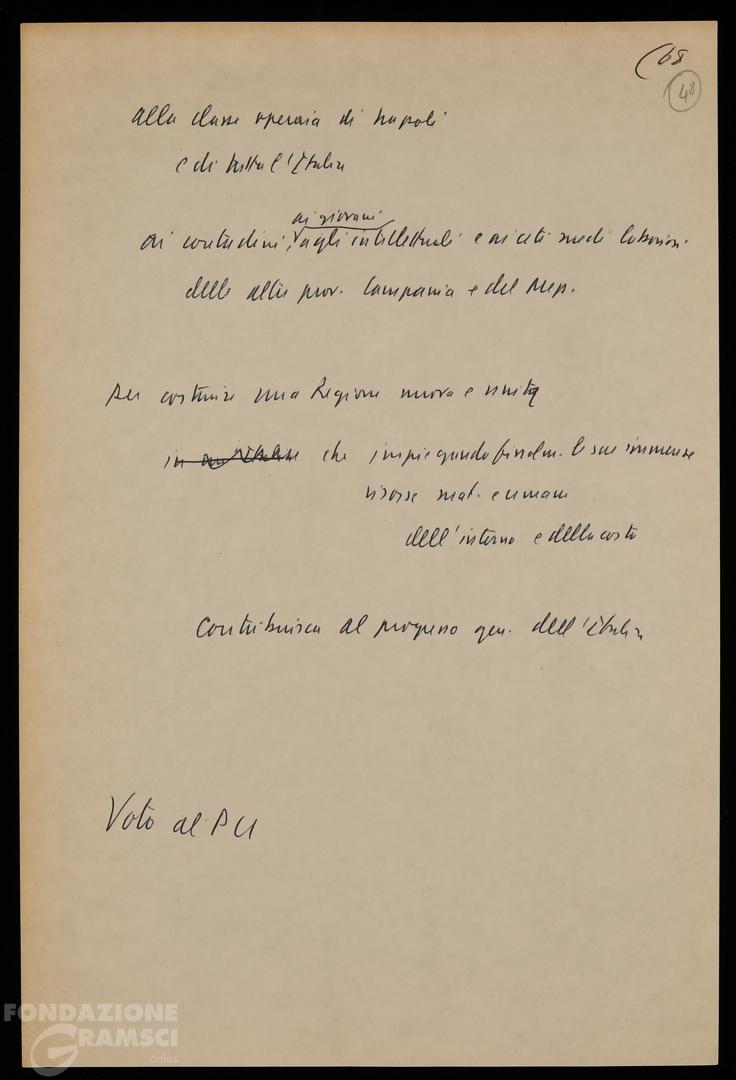 (68
48
alla classe operaia di Napoli
e di tutta l'Italia
ai giovani
ai contadini, agli intellettuali e ai ceti medi laboriosi
delle altre prov. Campania e del Mep.
Per costruire una Regione nuova e unita
in un'Italia che impiegando finalm. le sue immense
risorse mat. e umane
dell'interno e della costa
Contribuisca al progresso gen. dell'Italia
Voto al PCI
FONDAZIONE
GRAMSCI
onlus